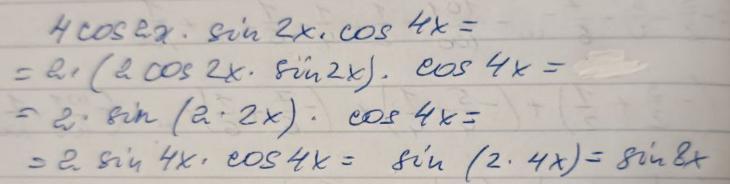 4 cos 2x · sin 2x · cos 4x =
= 2 · (2 cos 2x · sin 2x) · cos 4x =
= 2 · sin (2 · 2x) · cos 4x =
= 2 sin 4x · cos 4x = sin (2 · 4x) = sin 8x